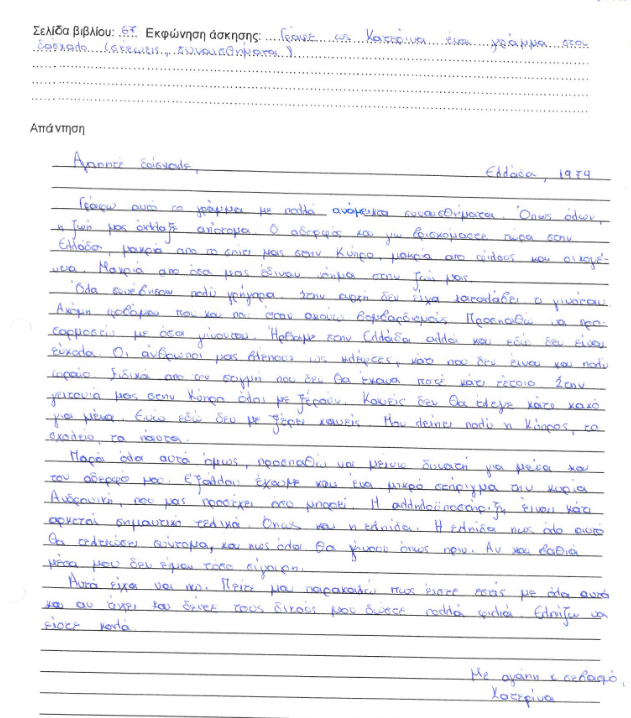 Σελίδα βιβλίου: 67 Εκφώνηση άσκησης: Γράψε ως Κατερίνα ένα γράμμα στον
δάσκαλο (σκέψεις, συναισθήματα)
Απάντηση
Αγαπητέ δάσκαλε,
Ελλάδα, 1974
Γράφω αυτό το γράμμα με πολλά ανάμεικτα συναισθήματα. Όπως όλων,
η ζωή μας άλλαξε απότομα. Ο αδερφός και γω βρισκόμαστε τώρα στην
Ελλάδα, μακριά από το σπίτι μας στην Κύπρο, μακριά από φίλους και οικογέ-
νεια. Μακριά από όσα μας έδιναν νόημα στην ζωή μας.
Όλα συνέβησαν πολύ γρήγορα. Στην αρχή δεν είχα καταλάβει τι γινόταν.
Ακόμη φοβάμαι που και που όταν ακούω βομβαρδισμούς. Προσπαθώ να προ-
σαρμοστώ με όσα γίνονται. Ήρθαμε στην Ελλάδα αλλά και εδώ δεν είναι
εύκολα. Οι άνθρωποι μας βλέπουν ως κλέφτες, κάτι που δεν είναι και πολύ
ωραίο. Ειδικά από την στιγμή που δεν θα έκανα ποτέ κάτι τέτοιο. Στην
γειτονιά μας στην Κύπρο όλοι με ξέρουν. Κανείς δεν θα έλεγε κάτι κακό
για μένα. Ενώ εδώ δεν με ξέρει κανείς. Μου λείπει πολύ η Κύπρος, το
σχολείο, τα πάντα.
Παρά όλα αυτά όμως, προσπαθώ να μείνω δυνατή για μένα και
τον αδερφό μου. Εξάλλου έχουμε και ένα μικρό στήριγμα την κυρία
Ανδρονίκη, που μας προσέχει όσο μπορεί. Η αλληλοϋποστήριξη είναι κάτι
αρκετά σημαντικό τελικά. Όπως και η ελπίδα. Η ελπίδα πως όλο αυτό
θα τελειώσει σύντομα, και πως όλα θα γίνουν όπως πριν. Αν και βαθιά
μέσα μου δεν είμαι τόσο σίγουρη.
Αυτά είχα να πω. Πείτε μου παρακαλώ πως είστε εσείς με όλα αυτά
και αν τύχει και δείτε τους δικούς μου δώστε πολλά φιλιά. Ελπίζω να
είστε καλά.
Με αγάπη κ σεβασμό,
Κατερίνα